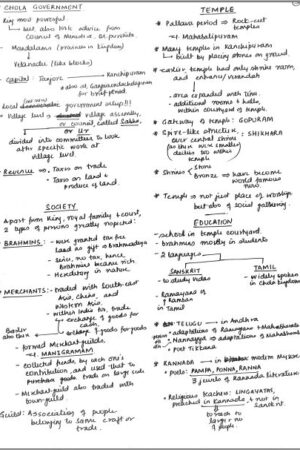 CHOLA GOVERNMENT
King most powerful
but also took advice from
Council of Ministers
Mandalams (provinces in kingdom)
Valanadu (like blocks)
Capital: Tanjore
Kanchipuram
also at Gangaikondacholapuram
for brief period.
Local government setup!!!
Village level village assembly,
or council, called Sabha.
OR UR
divided into committees to look
after specific work at
village level.
Revenue Taxes on trade
Taxes on land +
produce of land.
SOCIETY
Apart from King, royal family & court,
2 types of persons greatly respected:
BRAHMINS: were granted tax free
land as gift Brahmadeya
since, no tax, hence
Brahmins became rich
Hereditary in nature
MERCHANTS: traded with South-east
Asia, China, and
Western Asia.
within India also, trade
exchange of goods for
cash.
Barter
also there
exchange of goods for goods
formed Merchant guilds.
MANIGRAMAM
collected funds by each one's
contribution, and used that to
purchase goods, trade on large scale
Merchant guild also traded with
town guild.
Guild: Association of people
belonging to same craft or
trade.
TEMPLE
* Pallava period Rock-cut
temples
Mahabalipuram
* Many temples in Kanchipuram
built by placing stones on ground.
* earlier temple had only shrine room,
and entrance/verandah
area expanded with time.
additional rooms & halls,
within courtyard of temple.
* Gateway of temple: GOPURAM
* Spire-like structure
over central shrine: SHIKHARA
temple
* Shrines
bronze have become
world famous
now.
* Temple not just place of worship
but also of social gathering.
EDUCATION
school in temple courtyard.
brahmins mostly in students
2 languages
SANSKRIT
to study Vedas
TAMIL
Widely spoken
in Chola kingdom
Ramayana of
Kamban
in Tamil
TELUGU in Andhra
adaptations of Ramayana & Mahabharata
Nannayya adaptations of Mahabharata
Poet Tikkana
* KANNADA modern Mysore
Poets: PAMPA, PONNA, RANNA
3 jewels of Kannada literature
Religious teachers: LINGAYATAS,
preached in Kannada, & not in
Sanskrit.
to reach to
large no
of people